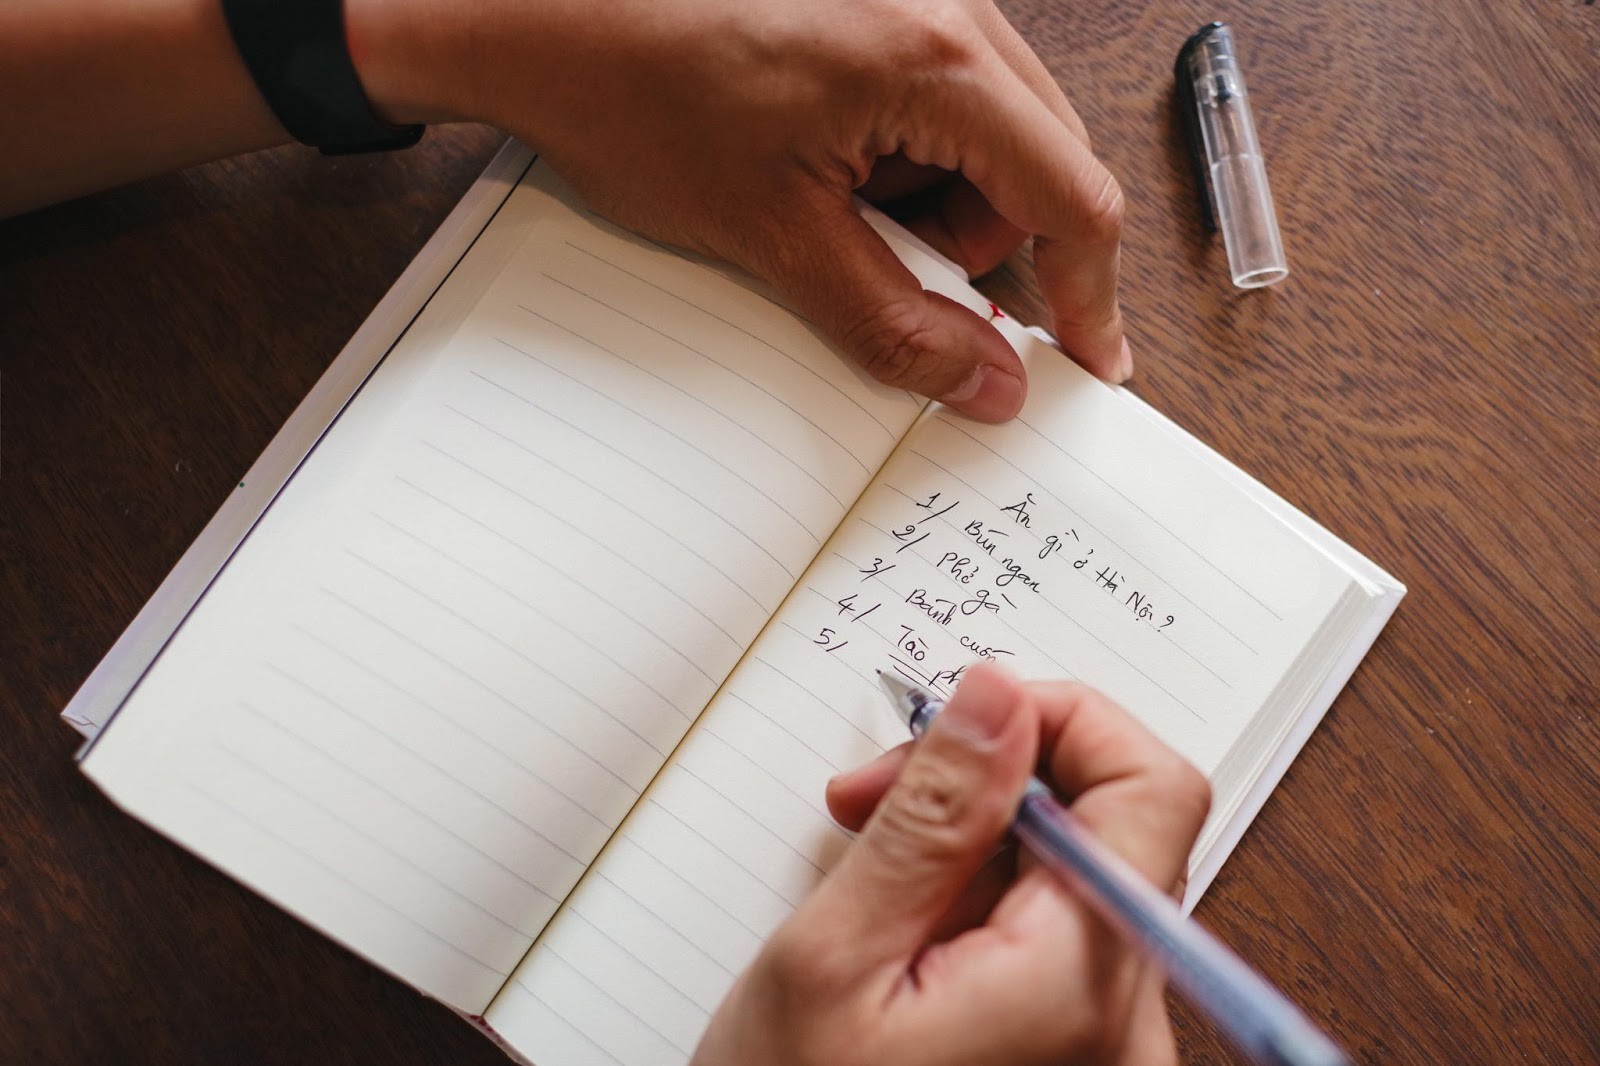 Ăn gì ở Hà Nội?
1/ Bún ngan
2/ Phở gà
3/ Bánh cuốn
4/ Tào
5/